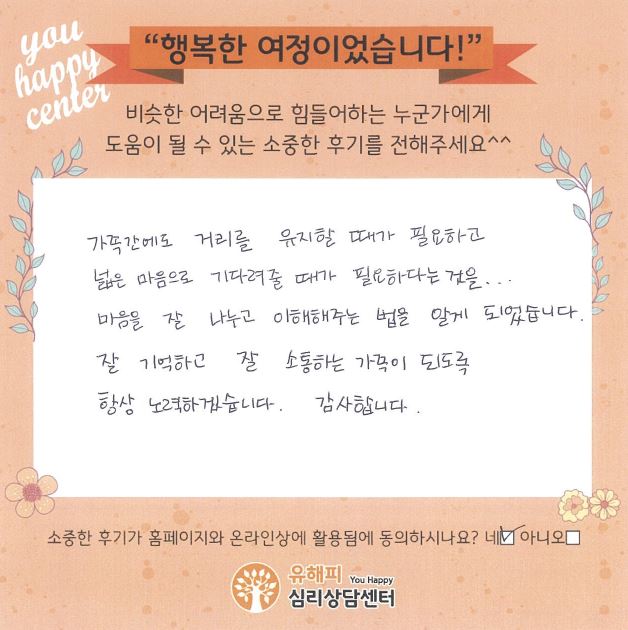 you
happy
center
“행복한 여정이었습니다!”
비슷한 어려움으로 힘들어하는 누군가에게
도움이 될 수 있는 소중한 후기를 전해주세요^^
가족간에도 거리를 유지할 때가 필요하고
넓은 마음으로 기다려줄 때가 필요하다는 것을...
마음을 잘 나누고 이해해주는 법을 알게 되었습니다.
잘 기억하고 잘 소통하는 가족이 되도록
항상 노력하겠습니다. 감사합니다.
소중한 후기가 홈페이지와 온라인상에 활용됨에 동의하시나요? 네☑ 아니오☐
유해피 You Happy
심리상담센터